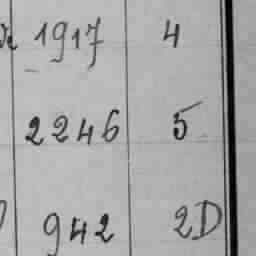 1917 4
2246 5
942 2D